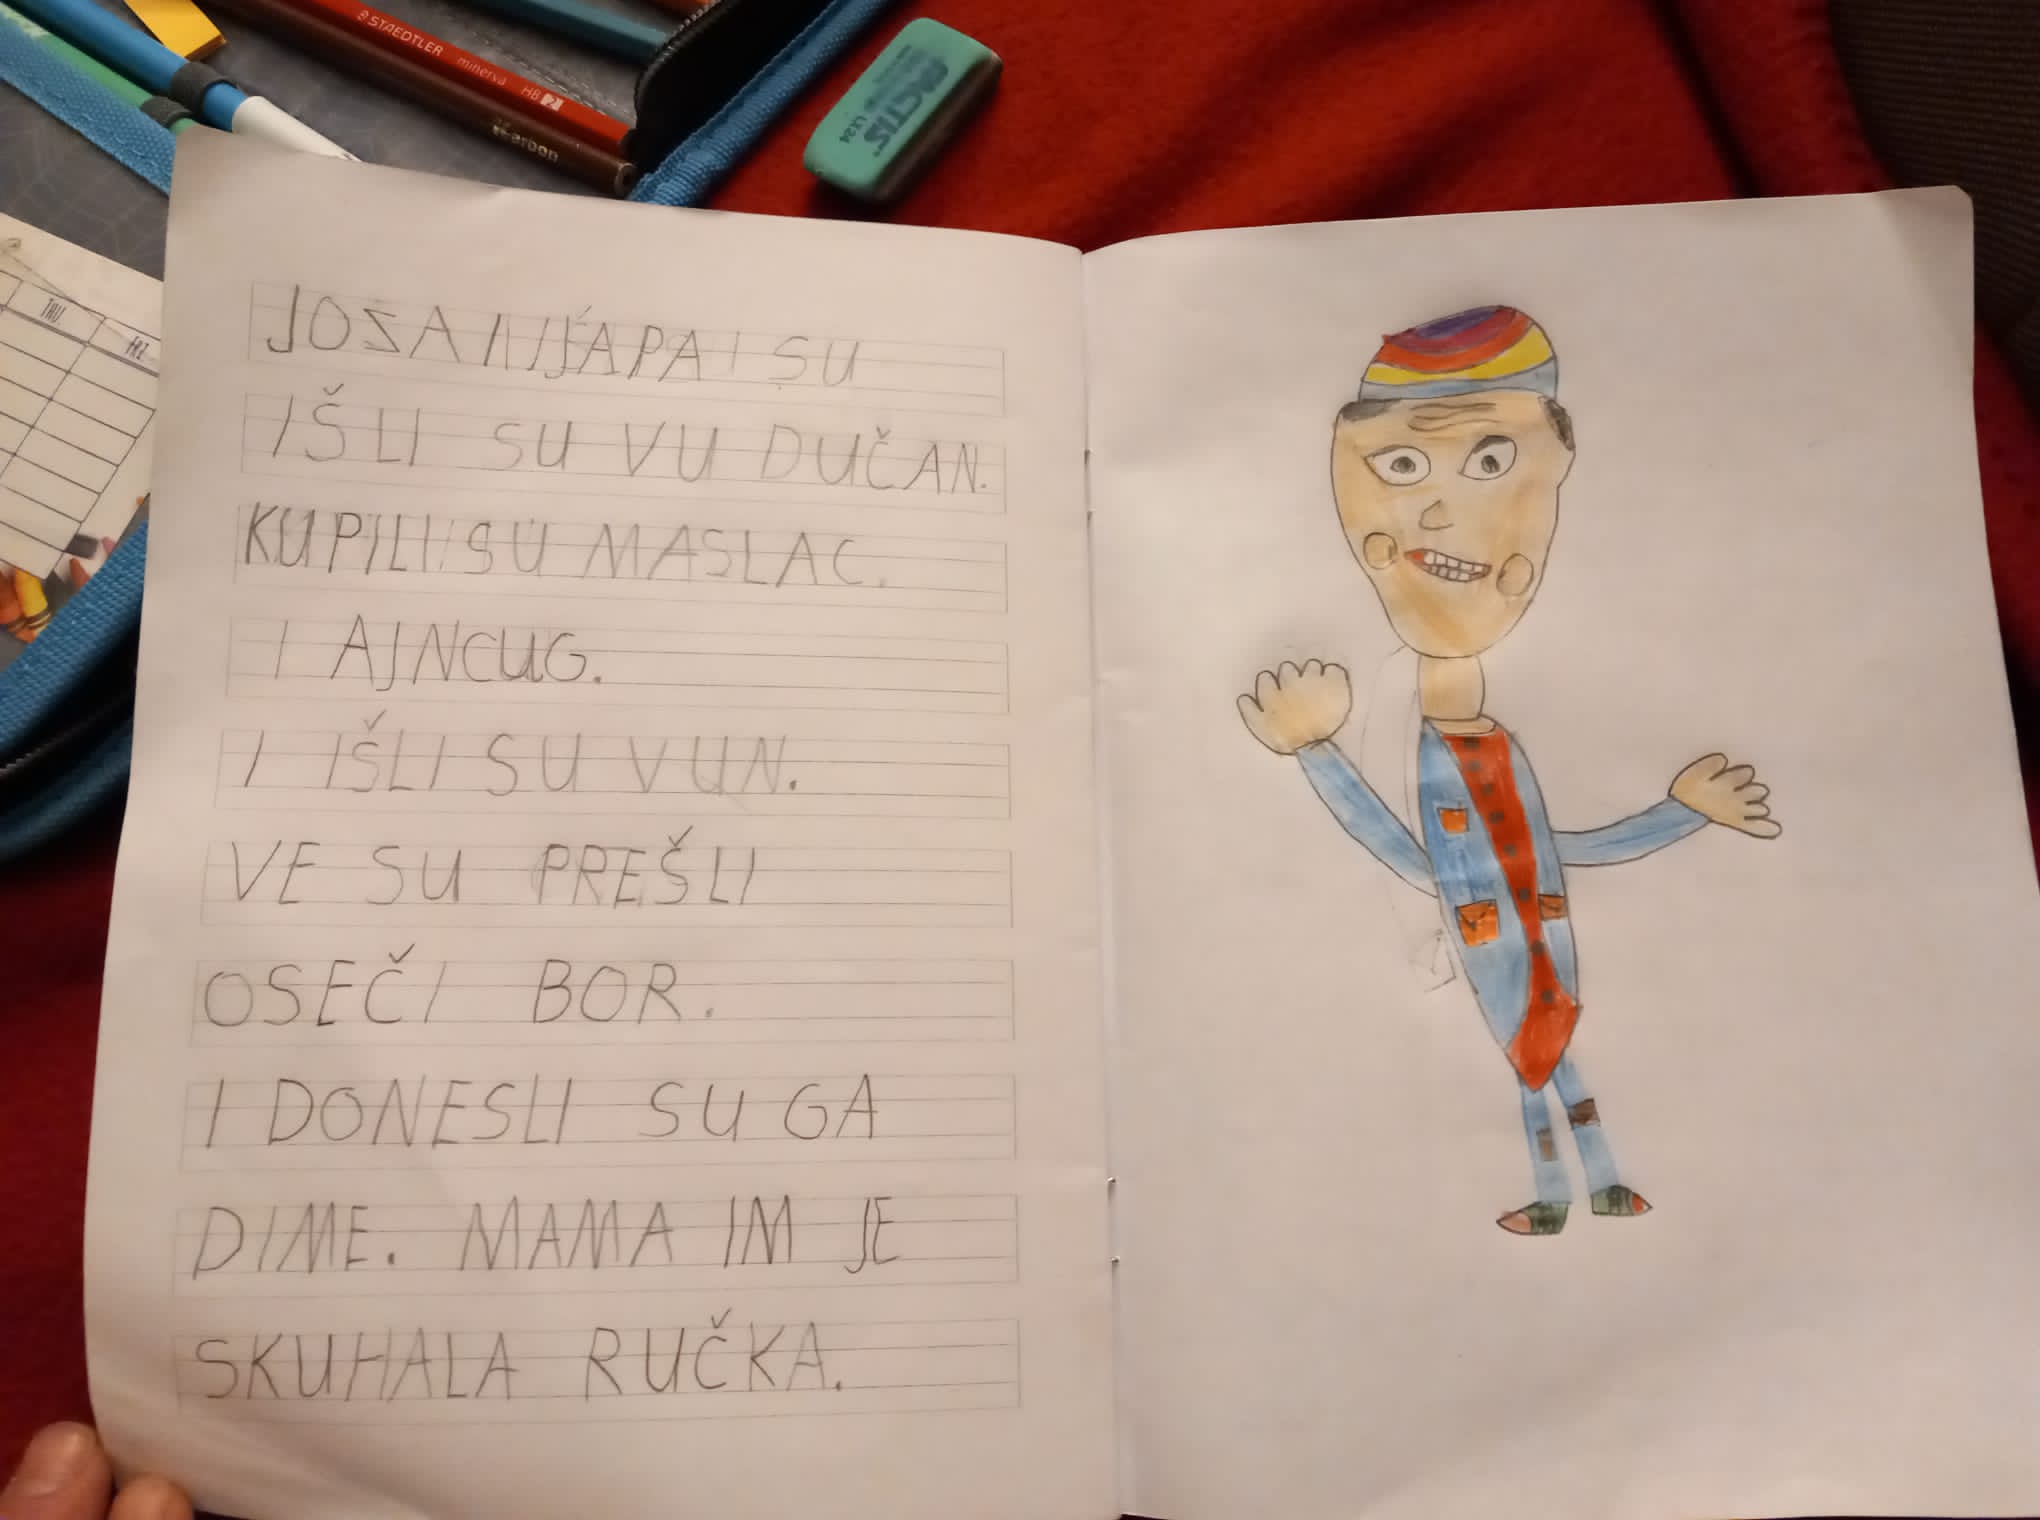 STAEDTLER minerva HB 2
FACTIS
THU.
FRI.
I SU
IŠLI SU VU DUČAN.
KUPILI SU MASLAC.
I AJNCUG.
I IŠLI SU VUN.
VE SU PREŠLI
OSEČI BOR.
I DONESLI SU GA
DIME. MAMA IM JE
SKUHALA RUČKA.